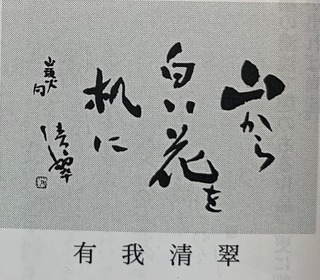 山から
白い花を
机に
山頭火
句
清翠
有我清翠